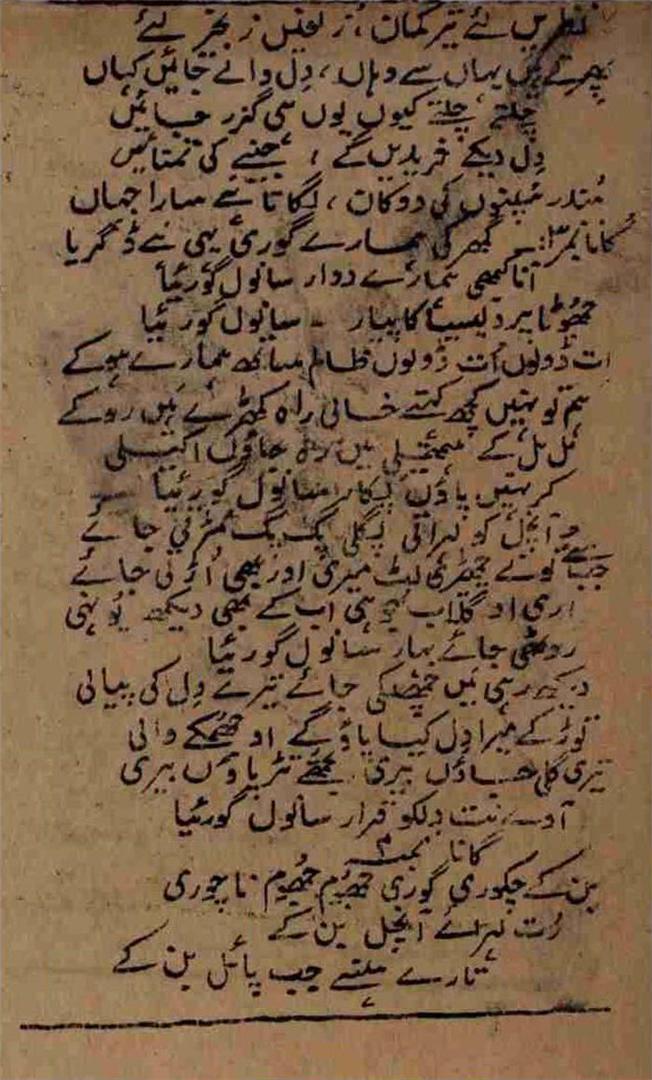 نظریں لئے تیر کمان، زلفیں زنجیر لئے
پھرتے ہیں یہاں سے وہاں، دل والے جائیں کہاں
چلتے چلتے کیوں یوں ہی گزر جائیں
دل دیکے خریدیں گے، جتنے کی تمنائیں
سندر سپنوں کی دوکان، لگاتا ہے سارا جہاں
گانا نمبر ۳:۔ گھر کی ہمارے گوری یہی ہے ڈگریا
آنا کبھی ہمارے دوار سانول گورئیا
جھوٹا پردیسیا کا پیار ۔ سانول گورئیا
ات ڈولوں اُت ڈولوں ظالم ساتھ ہمارے ہوکے
ہم تو نہیں کچھ کہتے خالی راہ کھڑے ہیں روکے
مل مل کے ہتھیلی میں رہ جاؤں اکیلی
کر نہیں پاؤں پکار سانول گورئیا
آنچل کو لہراتی پگلی پگ پگ مڑتی جائے
جب سے توے چھیڑی لٹ میری اور بھی اُڑتی جائے
اری او گلاب ہی اب کے بھی دیکھ یُونہی
روٹھی جائے بہار سانول گورئیا
دیکھ رہی ہیں چھلکی جائے تیرے دل کی پیالی
توڑ کے میرا دل کیا پاؤگے او جھمکے والی
تیری گلی جاؤں بیری تجھے تڑپاؤں بیری
آوے نت دلکو قرار سانول گورئیا
گانا نمبر ۴
بن کے چکوری گوری جھوم جھوم ناچوری
رُت لہرائے آنچل بن کے
تارے ہنستے جب پائل بن کے